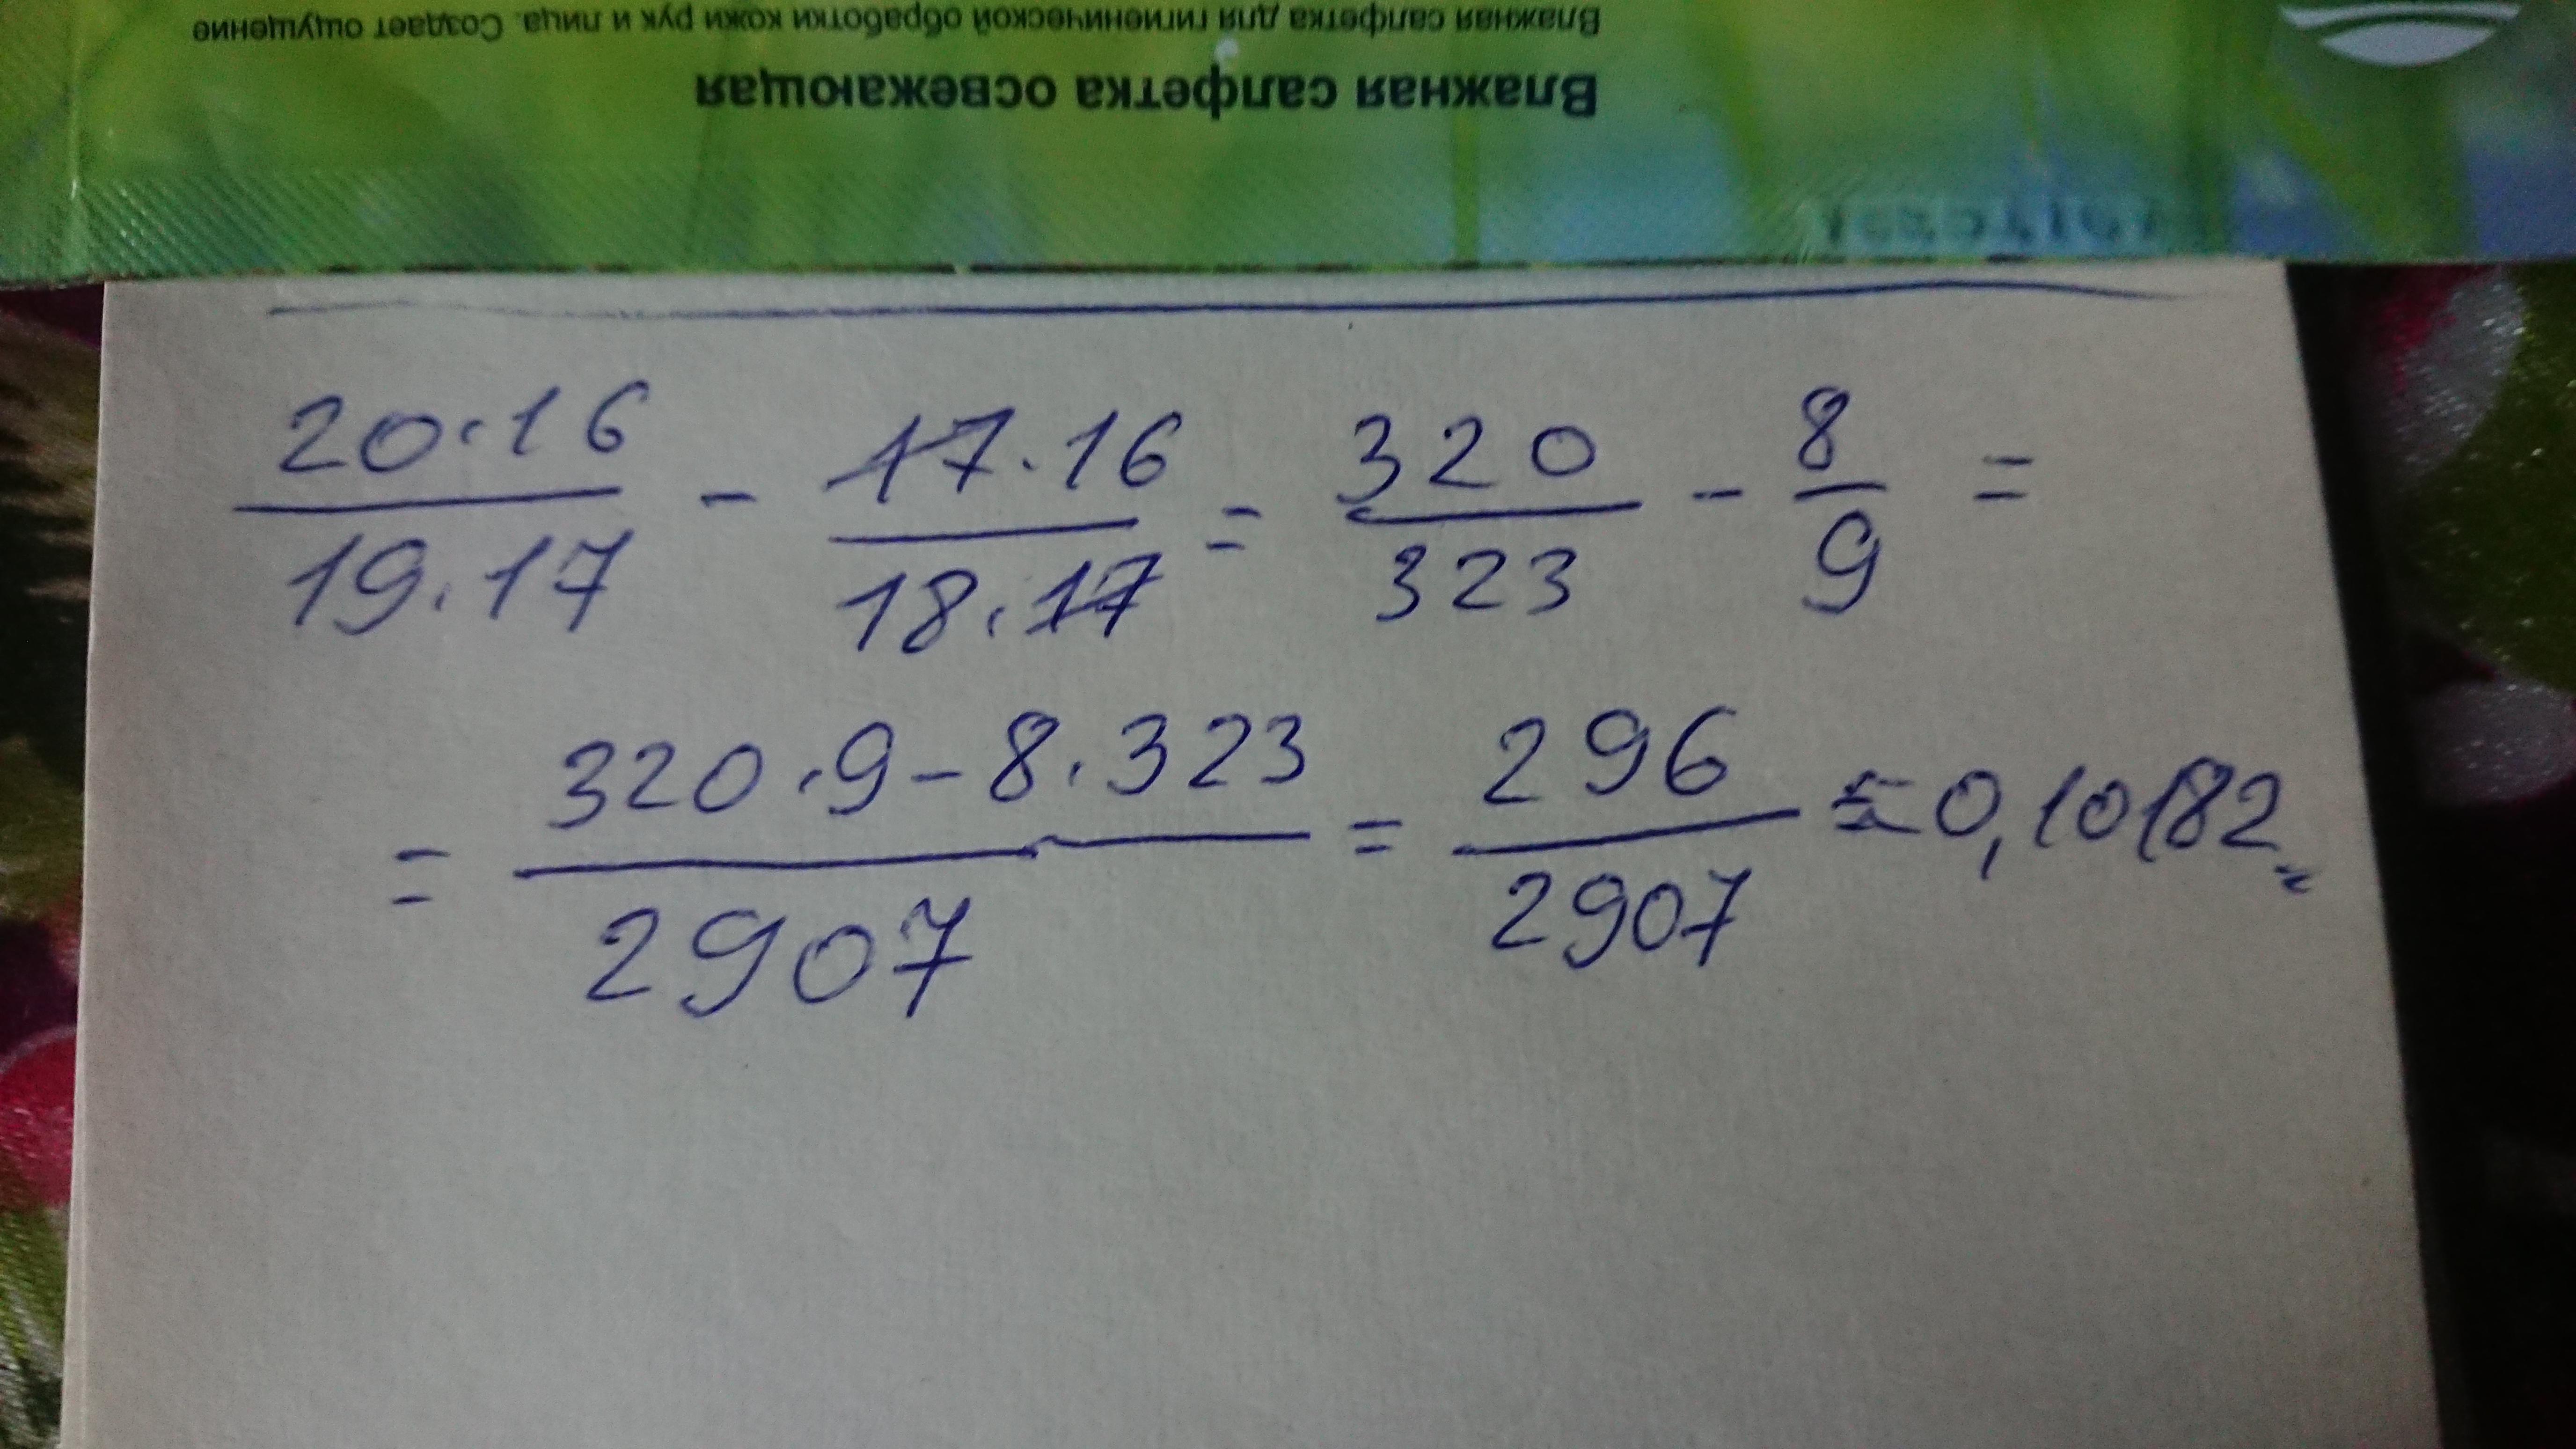 Влажная салфетка для гигиенической обработки кожи рук и лица. Создает ощущение
Влажная салфетка освежающая
20·16/19·17 - 17·16/18·17 = 320/323 - 8/9 =
= 320·9-8·323/2907 = 296/2907 ≈ 0,10182